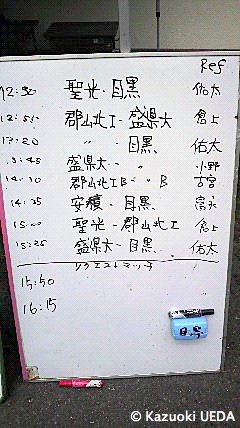 Ref
12:30 聖光・目黒 佑太
12:55 郡山北工・盛県大 倉上
13:20 〃・目黒 佑太
13:45 盛県大・〃 小野
14:10 郡山北工B・〃B 古宮
14:35 安積・目黒 富永
15:00 聖光・郡山北工 倉上
15:25 盛県大・目黒 佑太
リクエストマッチ
15:50
16:15
© Kazuoki UEDA